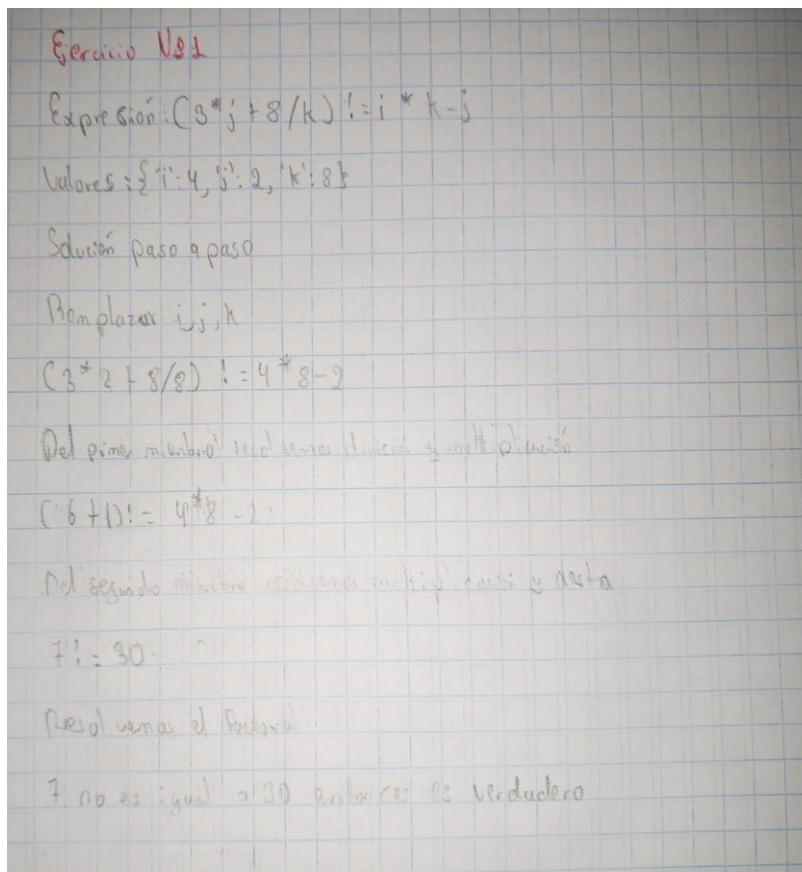 Ejercicio Nº 1
Expresión: (3*j + 8/k) != i * k-j
Valores: {'i': 4, 'j': 2, 'k': 8}
Solución paso a paso
Remplazar i, j, k
(3*2 + 8/8) != 4*8-2
Del primer miembro resolvemos división y multiplicación
(6+1) != 4*8 -2
Del segundo miembro resolvemos multiplicación y
7 != 30
Resolvemos el factorial
7 no es igual a 30 entonces es verdadero